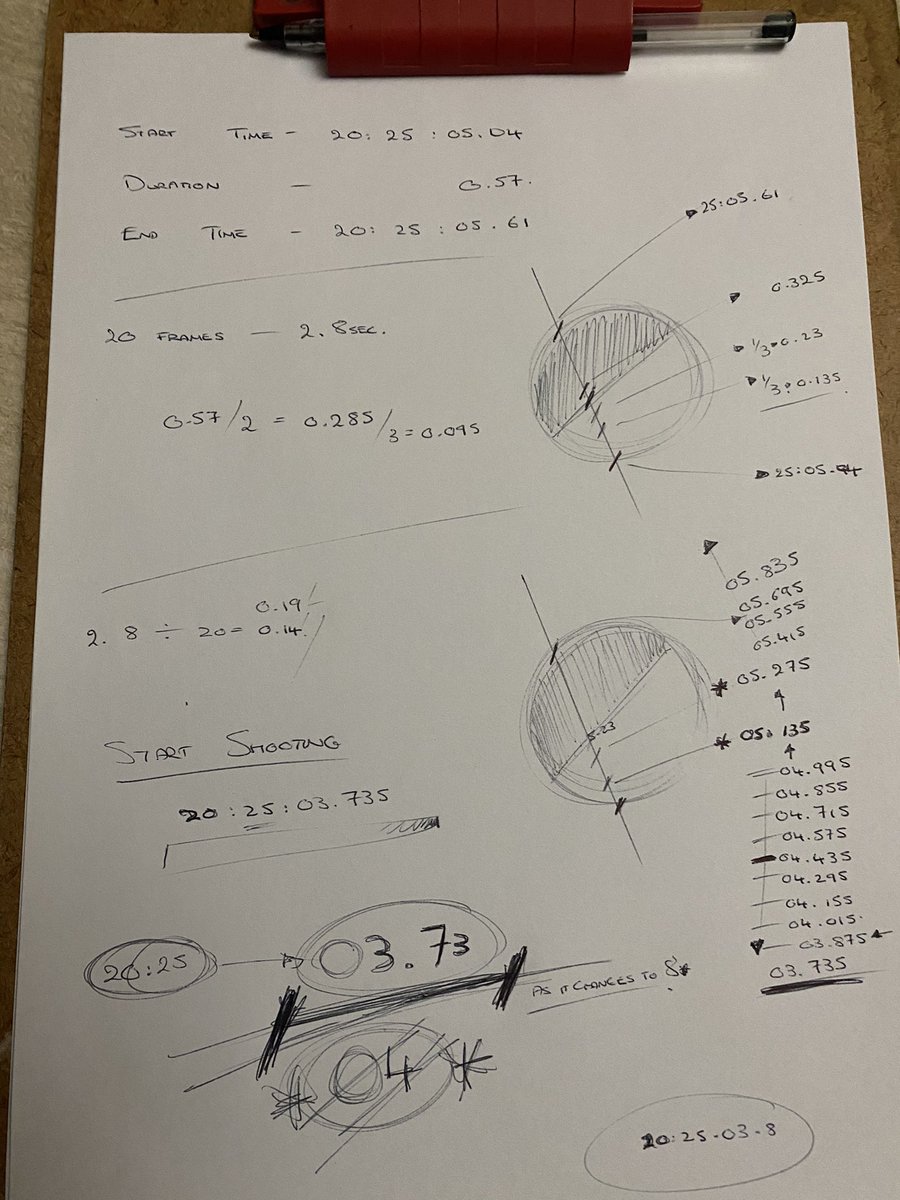 START TIME - 20:25:05.04
DURATION - 0.57.
END TIME - 20:25:05.61
25:05.61
20 FRAMES - 2.8SEC.
0.325
1/3 = 0.23
1/3 = 0.135
0.57/2 = 0.285/3 = 0.095
0.19
2.8 ÷ 20 = 0.14
05.835
05.695
05.555
05.415
* 05.275
5.23
* 05.135
04.995
04.855
04.715
04.575
04.435
04.295
04.155
04.015
03.875
03.735
START SHOOTING
20:25:03.735
20:25
03.73
AS IT CHANGES TO 8*
* 04 *
20:25-03-8